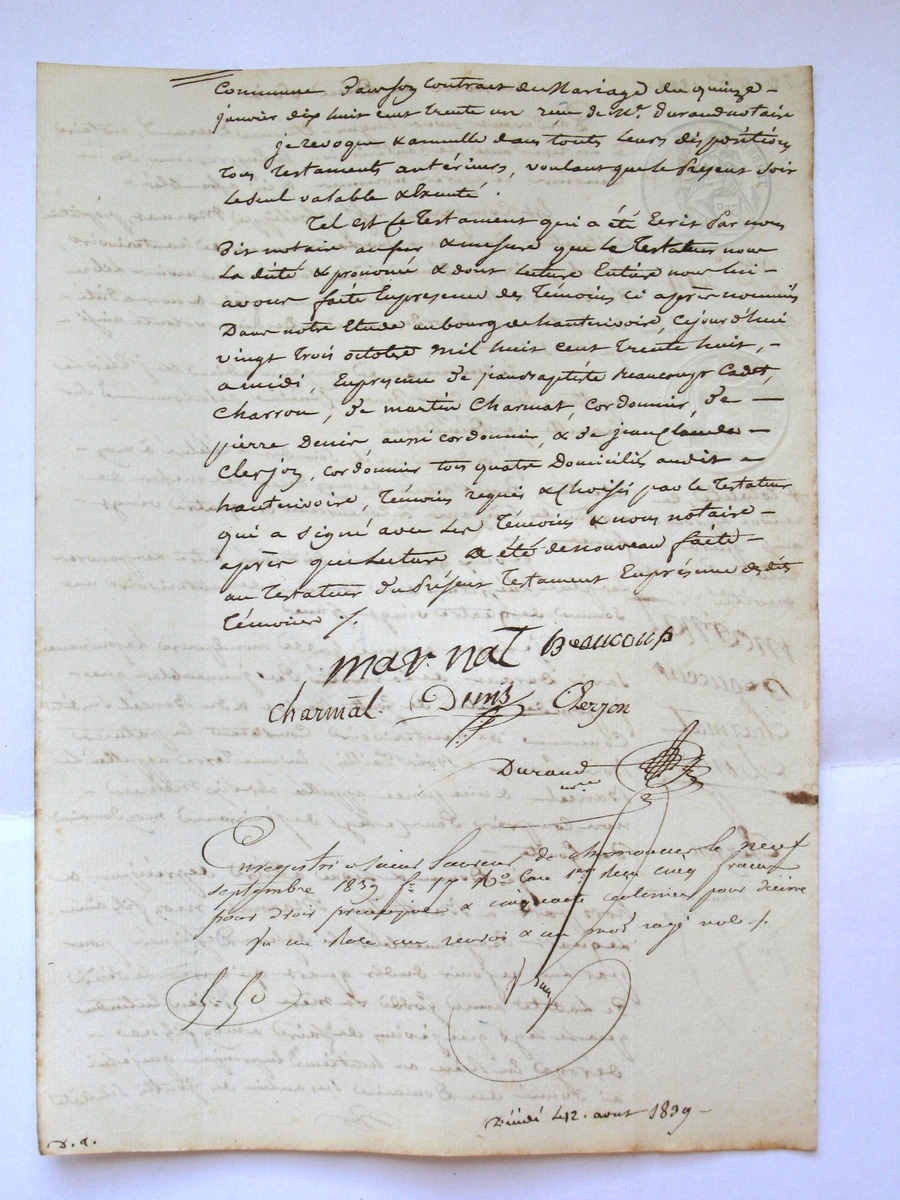 Commune par son Contract de Mariage du quinze
janvier dix huit cent trente un reçu de Me. Durand notaire
je revoque & annulle dans touts leurs dispositions
tous testaments antérieurs, voulant que le Présent soit
le seul valable & Exécuté.
Tel est le testament qui a été Ecrit Par nous
Dit notaire au fur & mesure que le Testateur nous
La dicté & prononcé & dont Lecture Entière nous lui
avons faite En presence des Témoins ci après nommés
Dans notre Etude au bourg de hauterivoire, Cejourd'hui
vingt trois octobre mil huit cent trente huit,
a midi, En presence de jean baptiste Beaucoup Cadet,
Charron, De martin Charmat, Cordonnier, De
pierre Denis aussi cordonnier, & De jean Claude
Clerjon, cordonnier tous quatre Domiciliés audit
hauterivoire, Témoins requis & Choisis par le Testateur
qui a signé avec Les Témoins & nous notaire
après que Lecture a été de nouveau faite
au Testateur du Présent Testament En présence desdits
Témoins ./.
mar. nat Beaucoup
Charmat. Denis Clerjon
Durand nre
Enregistré a Saint Laurent de chamousset le neuf
septembre 1839 fo 17 Ro Case 1ere reçu cinq francs
pour droit principal & cinquante centimes pour décime
un renvoi & un mot rayé nul ./.
Décédé le 12. aout 1839
D. d.